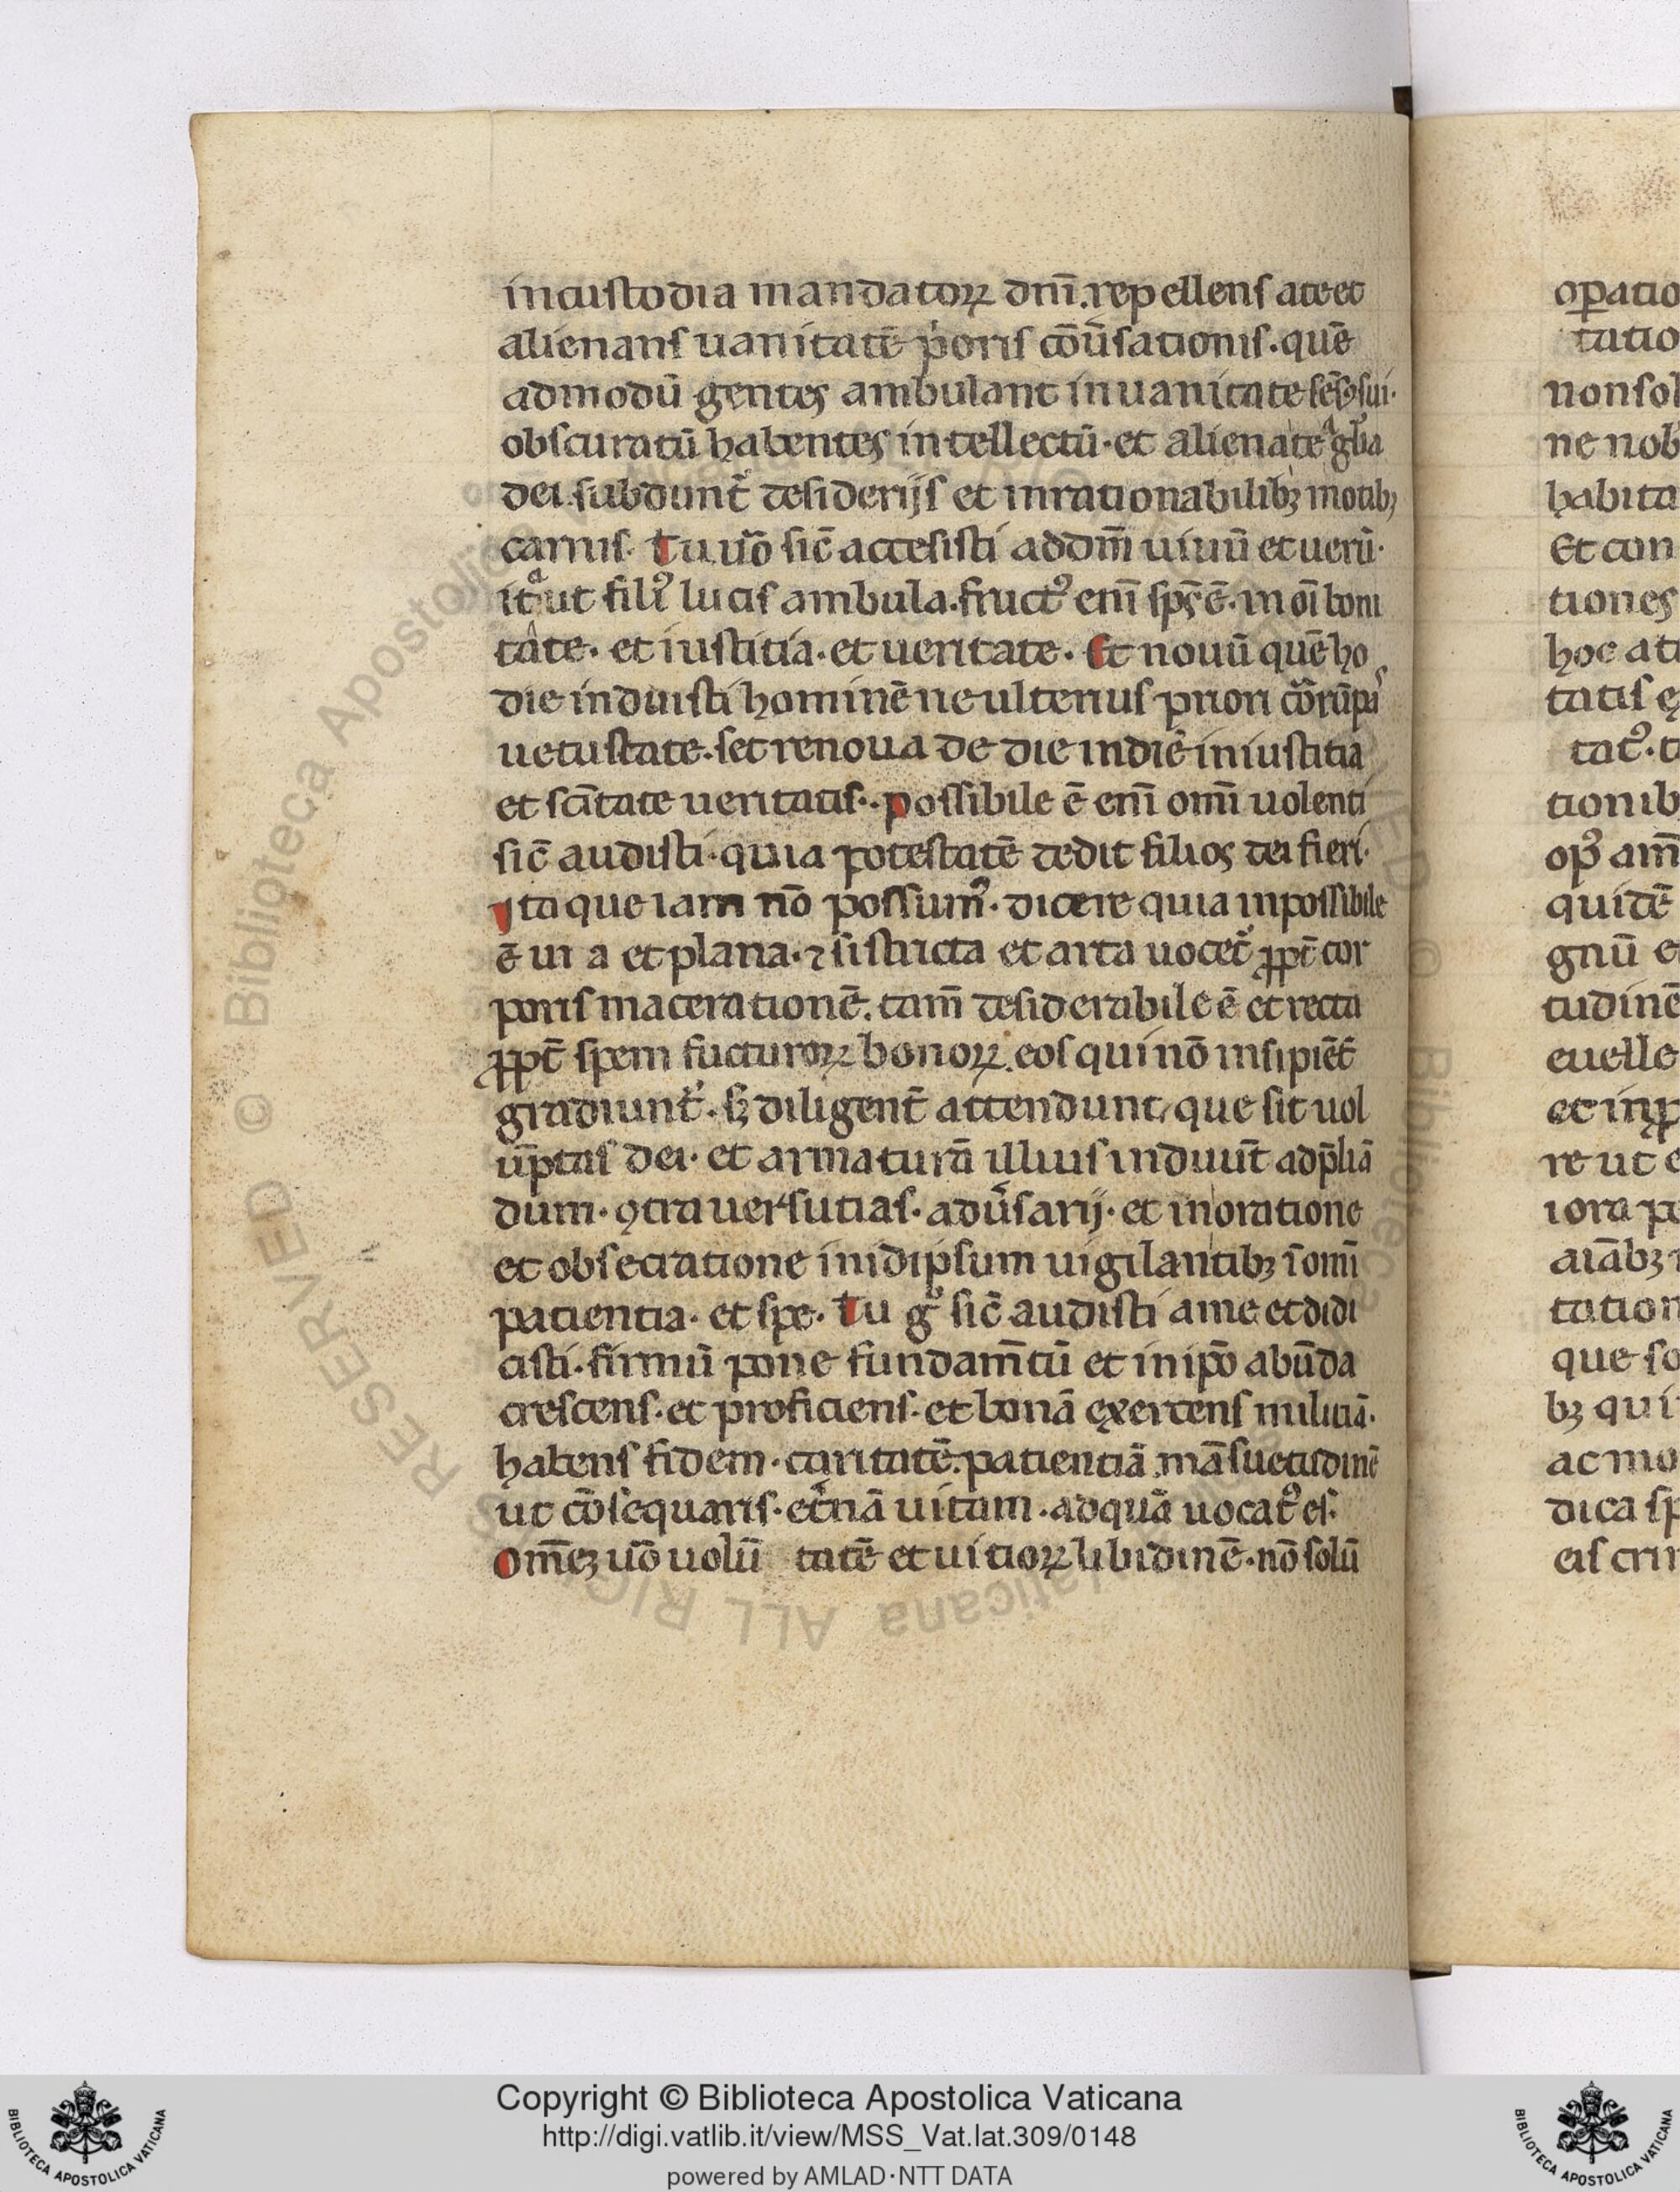 incustodia mandatoꝝ dnī. repellens ateet
alienans uanitatē pͥoris cōūsationis. quē
admodū gentes ambulant inuanitate sēsꝰ sui.
obscuratū habentes intellectū. et alienate a gl̄ia
dei. subdunt̄ desiderijs et inrationabilibꝫ motibꝫ
carnis. Tu uō sic̄ accesisti addm̄ uiuū et uerū.
itaut filiꝰ lucis ambula. fructꝰ enī sps̄ ē. in oī boni
tate. et iustitia. et ueritate. Et nouū quē ho
die induisti hominē ne ulterius priori corrūpi
uetustate. set renoua de die indiē iniustitia
et sc̄itate ueritatis. possibile ē enī omī uolenti
sic̄ audisti. quia potestatē dedit filios dei fieri.
Itaque iam nō possumꝰ. dicere quia inpossibile
ē uia et plana. ⁊ si stricta et arta uocet̄ ꝓpt̄ cor
poris macerationē. tam̄ desiderabile ē et recta
ꝓpt̄ spem fucturoꝝ bonoꝝ. eos qui nō insipiēt̄
gradiunt̄. sꝫ diligent̄ attendunt, que sit uol
ūptas dei. et armaturā illius induūt adp̄liā
dum. ꝯtra uersutias. adūsarij. et inoratione
et obsecratione inidipsum uigilantibꝫ ī omī
patientia. et spe. Tu gͦ sic̄ audisti ame et didi
cisti. firmū pone fundam̄tū et inip̄o abūda
crescens. et proficiens. et bonā exercens militiā.
habens fidem. caritatē. patientiā. māsuetudinē
ut cōsequaris. et̄nā uitam. adquā uocatꝰ es.
Om̄eꝫ uō uolū tatē et uitioꝝ libidinē. nō solū
opatio
tatio
nonsol
ne nob
habita
Et con
tiones
hoc at
tatis
tionib
quidē
gnū e
tudinē
euelle
re ut e
tation
que so
bꝫ qui
ac mo
dica sp
eis crim
Copyright © Biblioteca Apostolica Vaticana
http://digi.vatlib.it/view/MSS_Vat.lat.309/0148
powered by AMLAD·NTT DATA
BIBLIOTECA APOSTOLICA VATICANA
BIBLIOTECA APOSTOLICA VATICANA